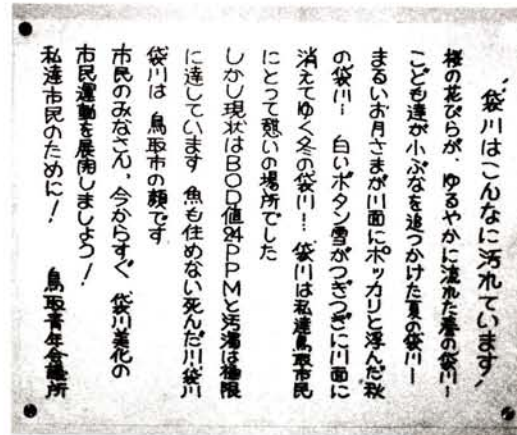 袋川はこんなに汚れています！
桜の花びらが、ゆるやかに流れた春の袋川ー
こども達が小ぶなを追つかけた夏の袋川ー
まるいお月さまが川面にポッカリと浮んだ秋
の袋川… 白いボタン雪がつぎつぎに川面に
消えてゆく冬の袋川… 袋川は私達鳥取市民
にとって憩いの場所でした
しかし現状はBOD値94PPMと汚濁は極限
に達しています 魚も住めない死んだ川袋川
袋川は 鳥取市の顔です
市民のみなさん、今からすぐ 袋川美化の
市民運動を展開しましょう！
私達市民のために！ 鳥取青年会議所